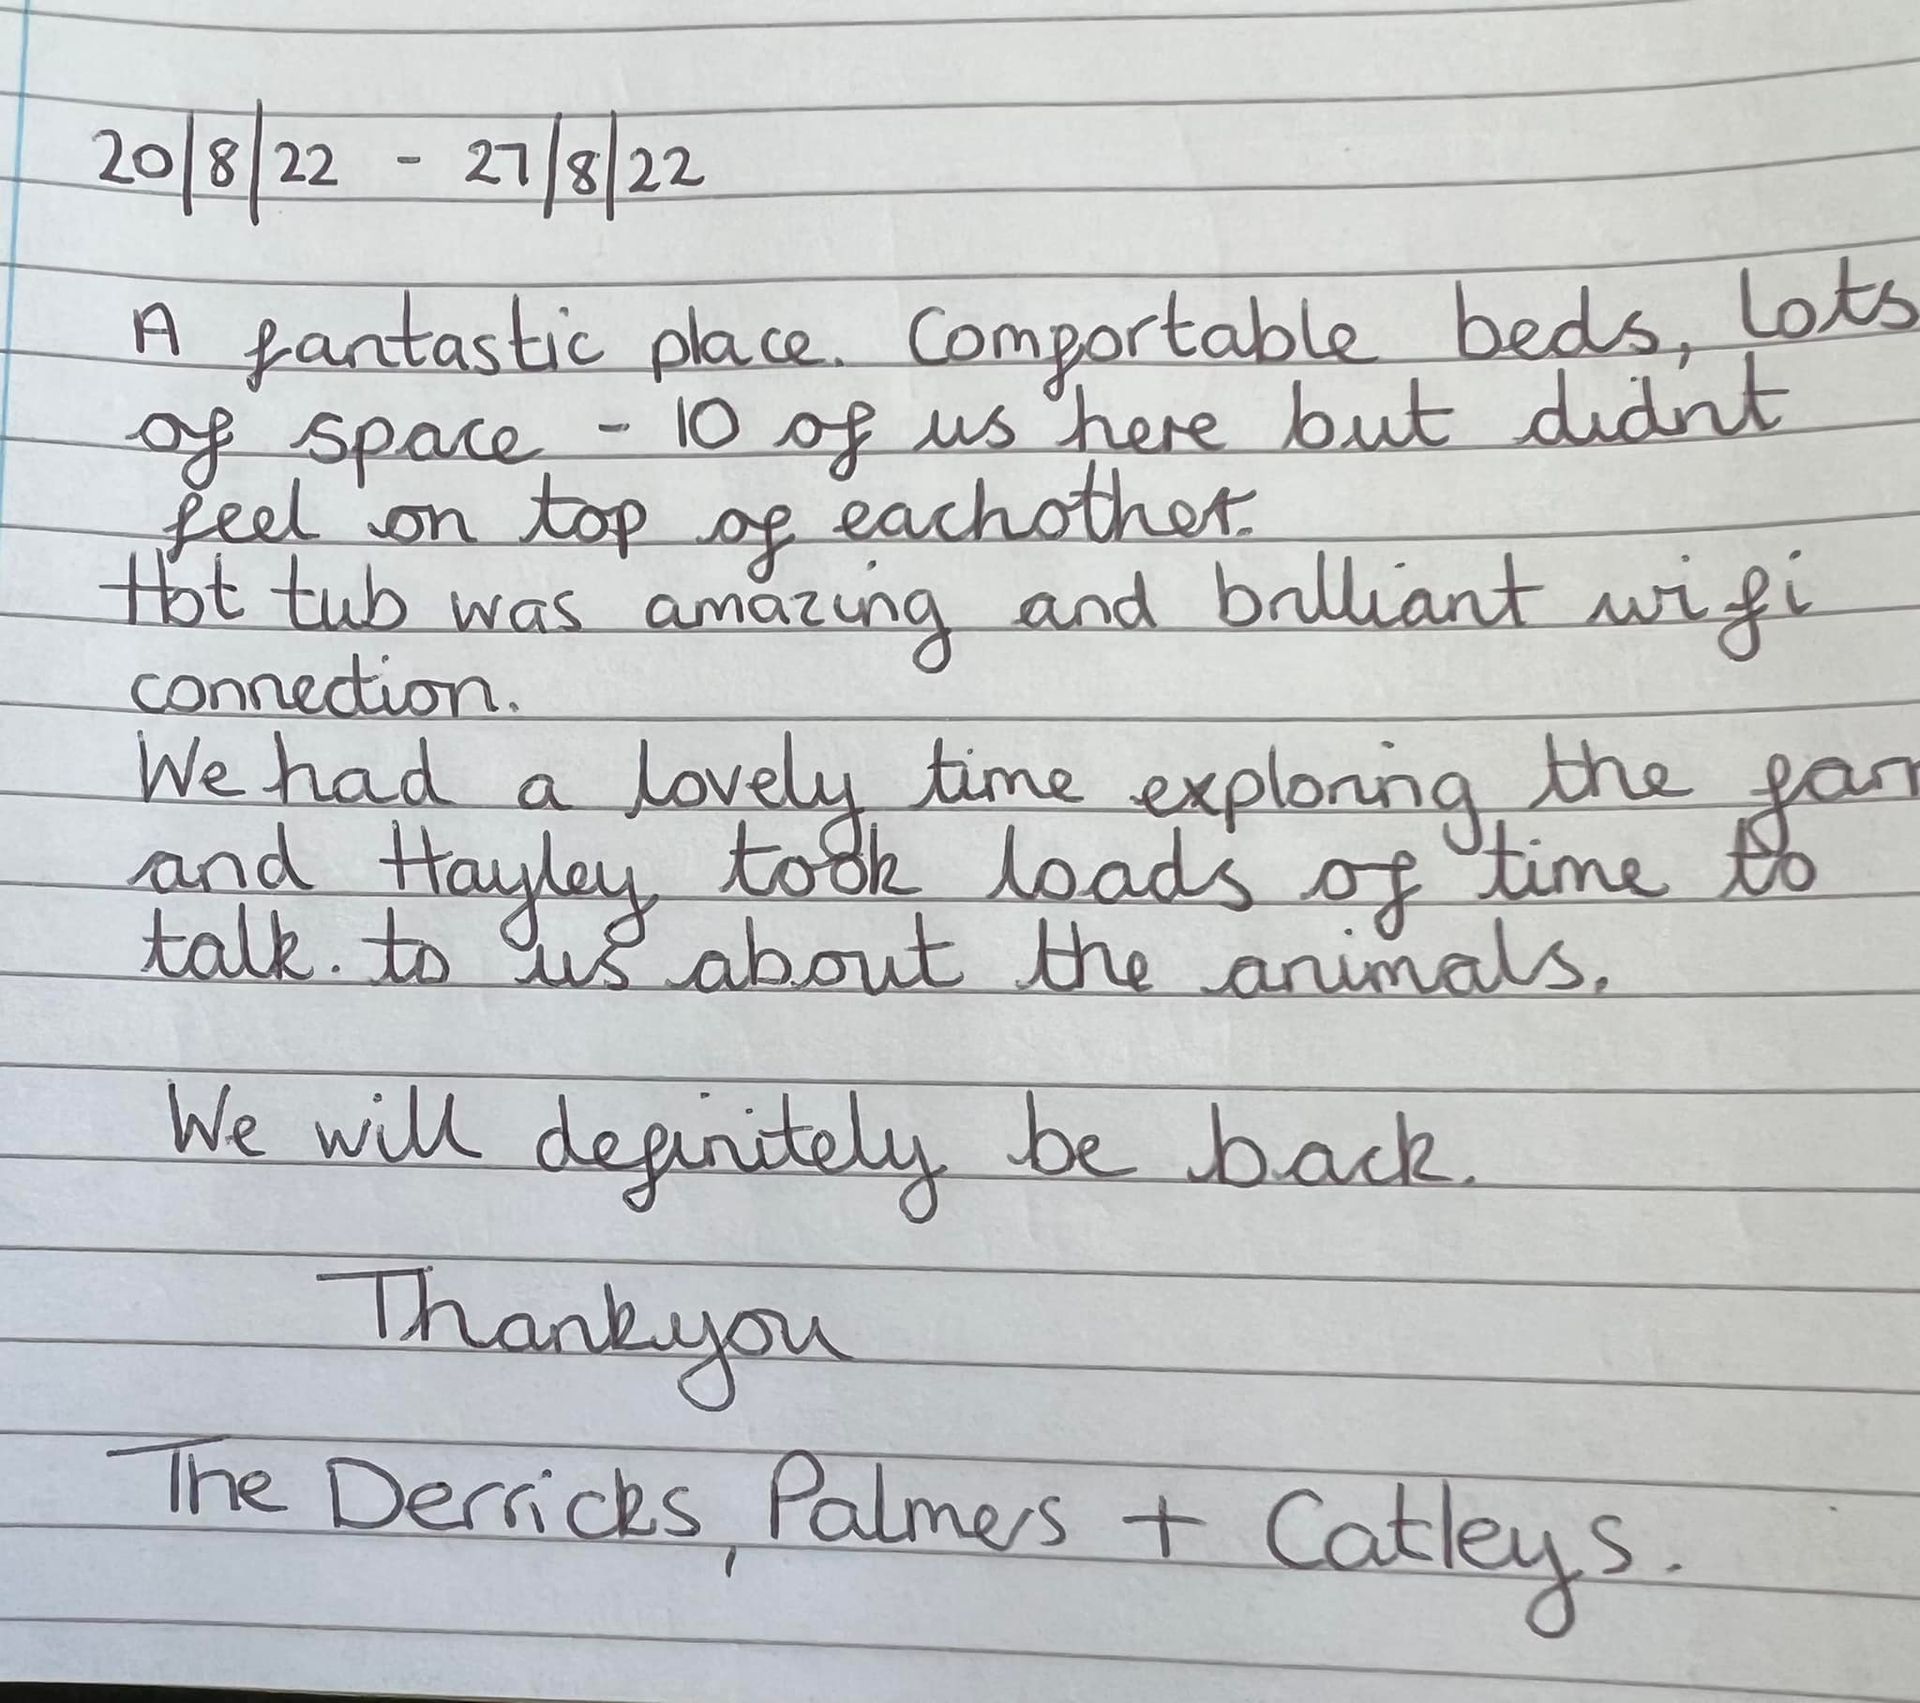 20/8/22 - 27/8/22
A fantastic place. Comfortable beds, lots
of space - 10 of us here but didnt
feel on top of eachother.
Hot tub was amazing and brilliant wifi
connection.
We had a lovely time exploring the farm
and Hayley took loads of time to
talk. to us about the animals.
We will definitely be back.
Thankyou
The Derricks, Palmers + Catleys.